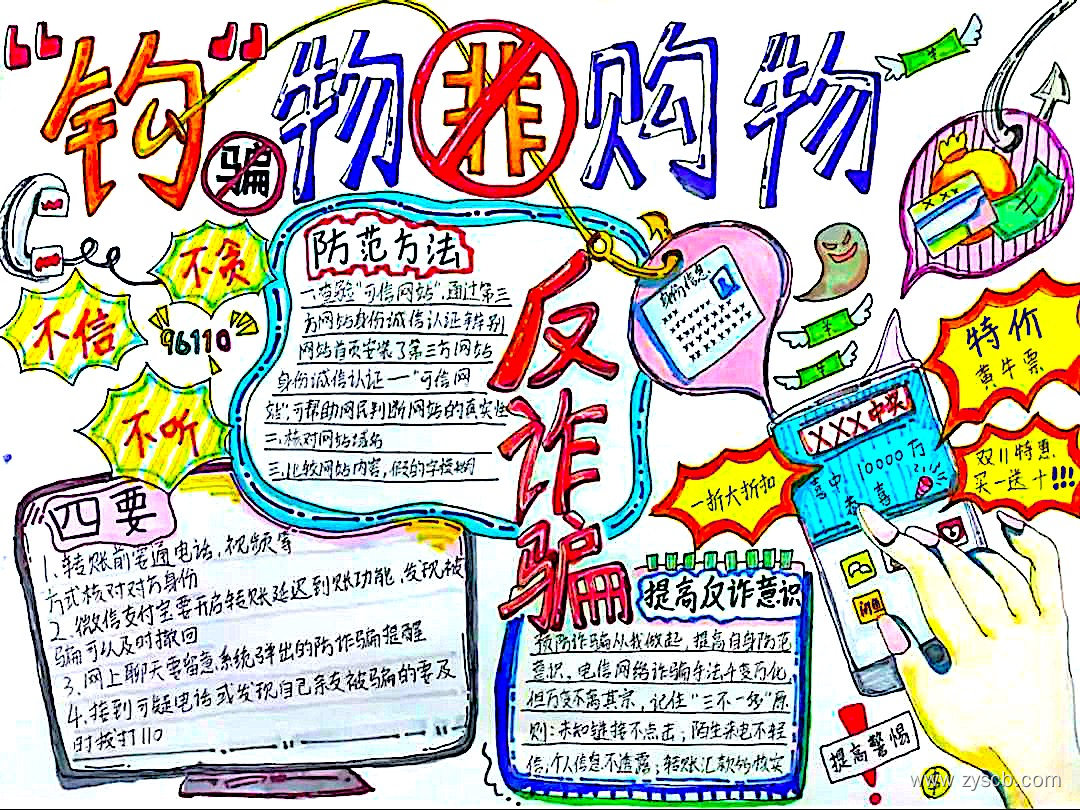 “钩”物非购物
骗
不贪
不信
96110
不听
防范方法
一.查验“可信网站”,通过第三
方网站身份诚信认证辩别
网站首页安装了第三方网站
身份诚信认证——“可信网
站”,可帮助网民判断网站的真实性
二.核对网站域名
三.比较网站内容,假的字模糊
反诈骗
身份信息
特价
黄牛票
双11特惠
买一送十!!!
一折大折扣
XXX中奖
喜中10000万
恭喜
闲鱼
四要
1、转账前要通电话,视频等
方式核对对方身份
2、微信支付宝要开启转账延迟到账功能,发现被
骗可以及时撤回
3、网上聊天要留意系统弹出的防诈骗提醒
4、接到可疑电话或发现自己亲友被骗的要及
时拨打110
提高反诈意识
预防诈骗从我做起,提高自身防范
意识,电信网络诈骗手法千变万化
但万变不离其宗,记住“三不一多”原
则:未知链接不点击;陌生来电不轻
信,个人信息不透露;转账汇款多核实
提高警惕
www.zyscb.com